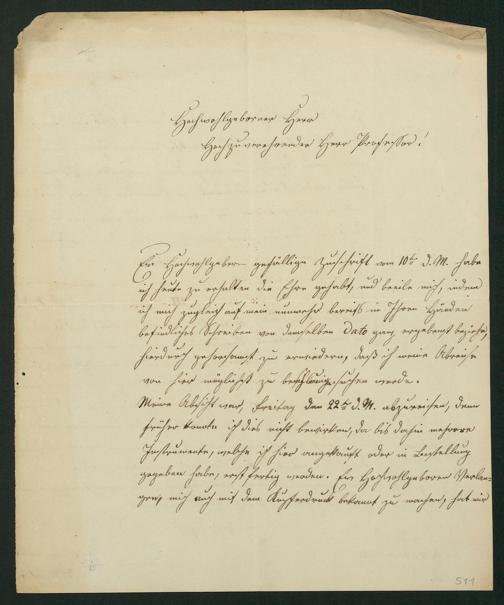 Hochwohlgeborner Herr
Hochzuverehrender Herr Professor!
Ew Hochwohlgeboren gefällige Zuschrift vom 10ten d. M. habe
ich heute zu erhalten die Ehre gehabt, und beeile mich, indem
ich mich zugleich auf mein nunmehr bereits in Ihren Händen
befindliches Schreiben von demselben Dato ganz ergebenst beziehe,
hierdurch gehorsamst zu erwiedern, daß ich meine Abreise
von hier möglichst zu suchen werde.
Meine Absicht war, Freitag den 22ten d. M. abzureisen, denn
früher konnte ich dies nicht bewirken, da bis dahin mehrere
Instrumente, welche ich hier angekauft oder in Bestellung
gegeben habe, erst fertig werden. Ew Hochwohlgeboren Verlan-
gen, mich auch mit dem Kupferdruck bekannt zu machen, hat mir
511